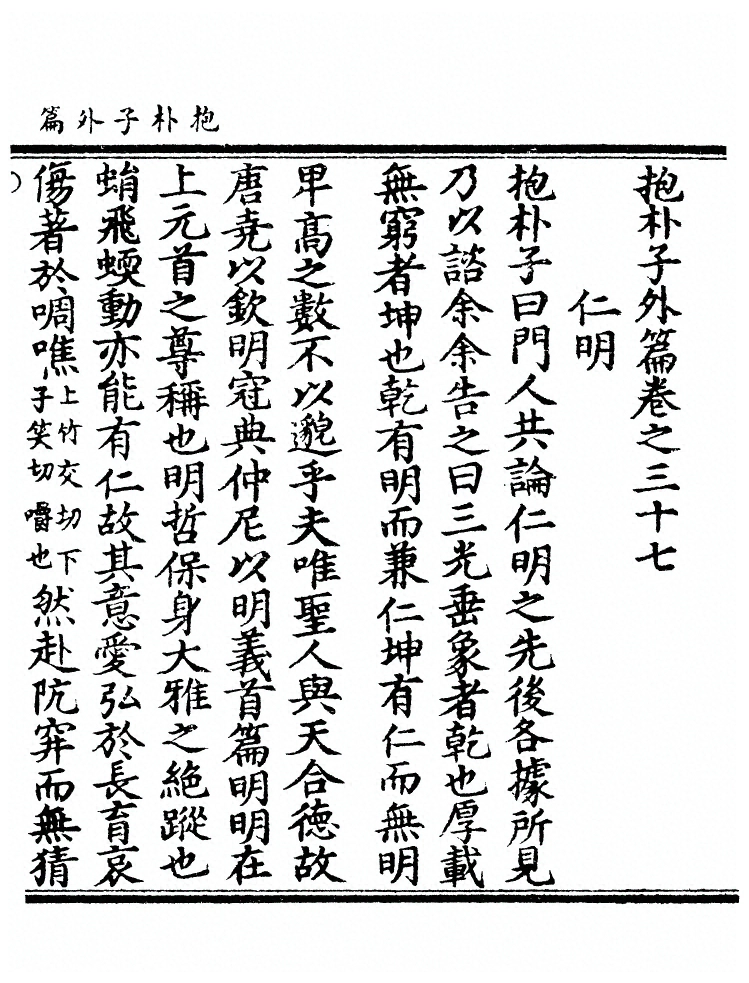 抱朴子外篇
抱朴子外篇卷之三十七
仁明
抱朴子曰門人共論仁明之先後各據所見
乃以諮余余告之曰三光垂象者乾也厚載
無窮者坤也乾有明而兼仁坤有仁而無明
卑高之數不以邈乎夫唯聖人與天合德故
唐堯以欽明冠典仲尼以明義首篇明明在
上元首之尊稱也明哲保身大雅之絶蹤也
蜎飛蝡動亦能有仁故其意愛弘於長育哀
傷著於啁噍上竹交切下子笑切嚼也然赴阬穽而無猜